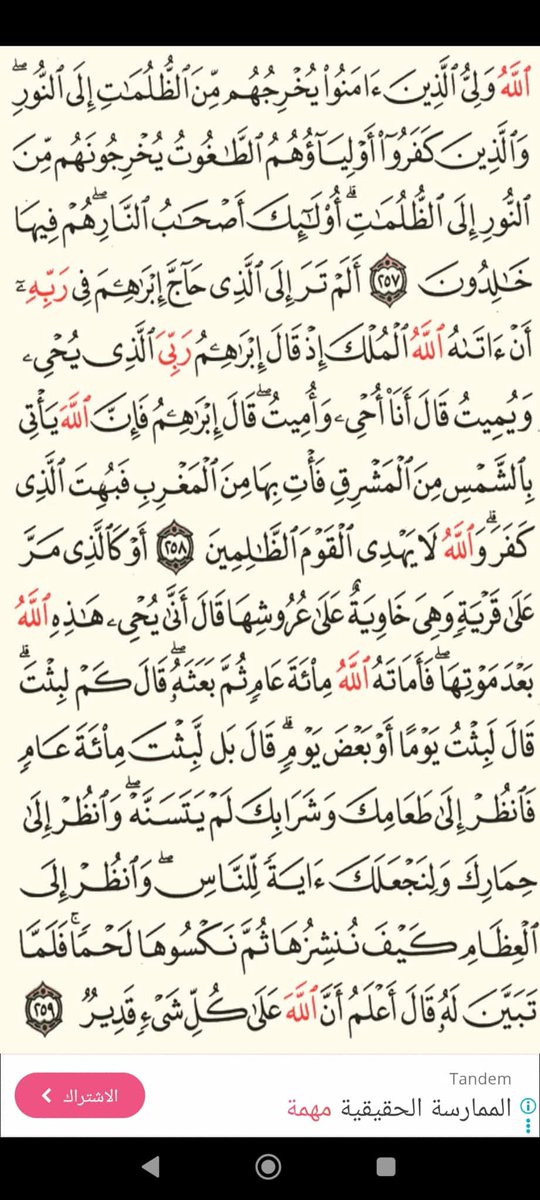 ٱللَّهُ وَلِىُّ ٱلَّذِينَ ءَامَنُوا۟ يُخْرِجُهُم مِّنَ ٱلظُّلُمَـٰتِ إِلَى ٱلنُّورِ ۖ
وَٱلَّذِينَ كَفَرُوٓا۟ أَوْلِيَآؤُهُمُ ٱلطَّـٰغُوتُ يُخْرِجُونَهُم مِّنَ
ٱلنُّورِ إِلَى ٱلظُّلُمَـٰتِ ۗ أُو۟لَـٰٓئِكَ أَصْحَـٰبُ ٱلنَّارِ ۖ هُمْ فِيهَا
خَـٰلِدُونَ ٢٥٧ أَلَمْ تَرَ إِلَى ٱلَّذِى حَآجَّ إِبْرَٰهِـۧمَ فِى رَبِّهِۦٓ
أَنْ ءَاتَىٰهُ ٱللَّهُ ٱلْمُلْكَ إِذْ قَالَ إِبْرَٰهِـۧمُ رَبِّىَ ٱلَّذِى يُحْىِۦ
وَيُمِيتُ قَالَ أَنَا۠ أُحْىِۦ وَأُمِيتُ ۖ قَالَ إِبْرَٰهِـۧمُ فَإِنَّ ٱللَّهَ يَأْتِى
بِٱلشَّمْسِ مِنَ ٱلْمَشْرِقِ فَأْتِ بِهَا مِنَ ٱلْمَغْرِبِ فَبُهِتَ ٱلَّذِى
كَفَرَ ۗ وَٱللَّهُ لَا يَهْدِى ٱلْقَوْمَ ٱلظَّـٰلِمِينَ ٢٥٨ أَوْ كَٱلَّذِى مَرَّ
عَلَىٰ قَرْيَةٍ وَهِىَ خَاوِيَةٌ عَلَىٰ عُرُوشِهَا قَالَ أَنَّىٰ يُحْىِۦ هَـٰذِهِ ٱللَّهُ
بَعْدَ مَوْتِهَا ۖ فَأَمَاتَهُ ٱللَّهُ مِا۟ئَةَ عَامٍ ثُمَّ بَعَثَهُۥ ۖ قَالَ كَمْ لَبِثْتَ ۖ
قَالَ لَبِثْتُ يَوْمًا أَوْ بَعْضَ يَوْمٍ ۖ قَالَ بَل لَّبِثْتَ مِا۟ئَةَ عَامٍ
فَٱنظُرْ إِلَىٰ طَعَامِكَ وَشَرَابِكَ لَمْ يَتَسَنَّهْ ۖ وَٱنظُرْ إِلَىٰ
حِمَارِكَ وَلِنَجْعَلَكَ ءَايَةً لِّلنَّاسِ ۖ وَٱنظُرْ إِلَى
ٱلْعِظَامِ كَيْفَ نُنشِزُهَا ثُمَّ نَكْسُوهَا لَحْمًا ۚ فَلَمَّا
تَبَيَّنَ لَهُۥ قَالَ أَعْلَمُ أَنَّ ٱللَّهَ عَلَىٰ كُلِّ شَىْءٍ قَدِيرٌ ٢٥٩
Tandem
الممارسة الحقيقية مهمة
الاشتراك